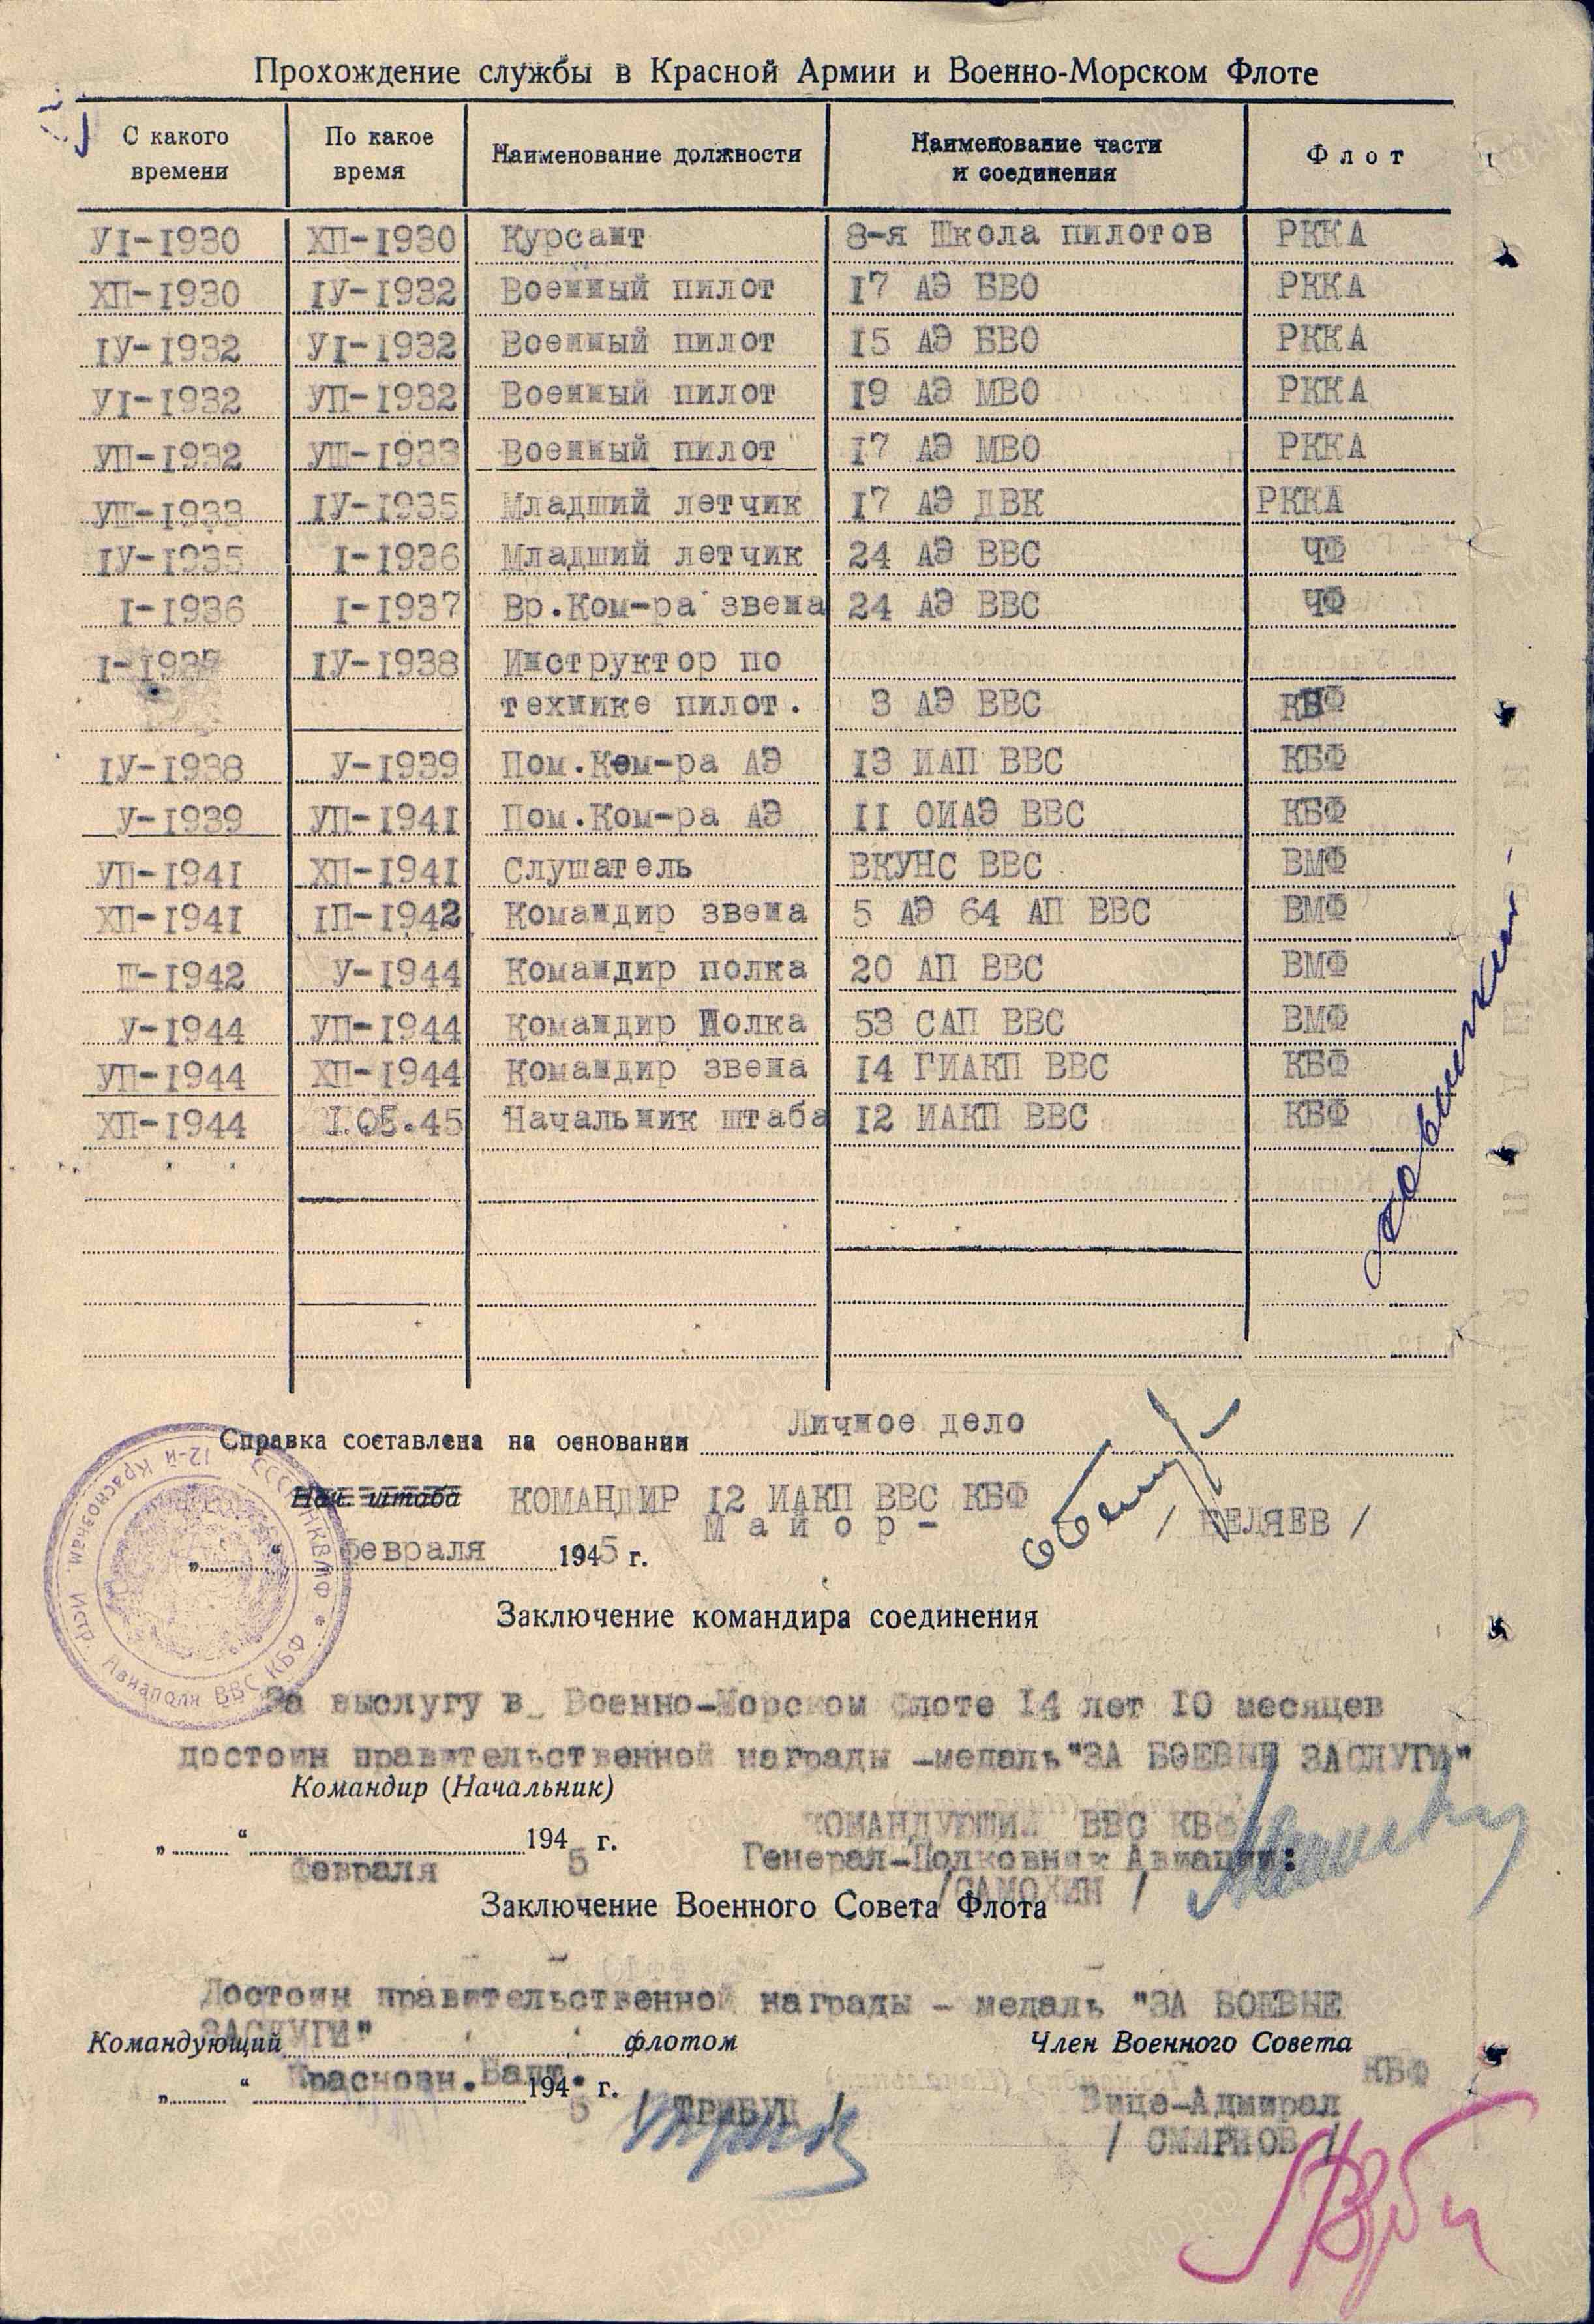 Прохождение службы в Красной Армии и Военно-Морском Флоте
С какого времени | По какое время | Наименование должности | Наименование части и соединения | Флот
УI-1930 | ХП-1930 | Курсант | 8-я Школа пилотов | РККА
ХП-1930 | IУ-1932 | Военный пилот | 17 АЭ БВО | РККА
IУ-1932 | УI-1932 | Военный пилот | 15 АЭ БВО | РККА
УI-1932 | УП-1932 | Военный пилот | 19 АЭ МВО | РККА
УП-1932 | УШ-1933 | Военный пилот | 17 АЭ МВО | РККА
УШ-1933 | IУ-1935 | Младший летчик | 17 АЭ ДВК | РККА
IУ-1935 | I-1936 | Младший летчик | 24 АЭ ВВС | ЧФ
I-1936 | I-1937 | Вр.Ком-ра звена | 24 АЭ ВВС | ЧФ
I-1937 | IУ-1938 | Инструктор по
технике пилот. | 3 АЭ ВВС | КБФ
IУ-1938 | У-1939 | Пом.Ком-ра АЭ | 13 ИАП ВВС | КБФ
У-1939 | УП-1941 | Пом.Ком-ра АЭ | 11 ОИАЭ ВВС | КБФ
УП-1941 | ХП-1941 | Слушатель | ВКУНС ВВС | ВМФ
ХП-1941 | IП-1942 | Командир звена | 5 АЭ 64 АП ВВС | ВМФ
Ш-1942 | У-1944 | Командир полка | 20 АП ВВС | ВМФ
У-1944 | УП-1944 | Командир Полка | 53 САП ВВС | ВМФ
УП-1944 | ХП-1944 | Командир звена | 14 ГИАКП ВВС | КБФ
ХП-1944 | 1.05.45 | Начальник штаба | 12 ИАКП ВВС | КБФ
Справка составлена на основании Личное дело
Нач. штаба КОМАНДИР 12 ИАКП ВВС КБФ
Майор- / БЕЛЯЕВ /
„ “ февраля 1945 г.
12-й Краснознам. Истр. Авиаполк ВВС КБФ * СССР НКВМФ
Заключение командира соединения
За выслугу в Военно-Морском флоте 14 лет 10 месяцев
достоин правительственной награды -медаль "ЗА БОЕВЫЕ ЗАСЛУГИ"
Командир (Начальник)
КОМАНДУЮЩИЙ ВВС КБФ
„ “ февраля 1945 г.
Генерал-Полковник Авиации:
/САМОХИН /
Заключение Военного Совета Флота
Достоин правительственной награды - медаль "ЗА БОЕВЫЕ
ЗАСЛУГИ"
Командующий флотом
Краснозн.Балт.
Член Военного Совета
КБФ
„ “ 1945 г.
/ ТРИБУЦ /
Вице-Адмирал
/ СМИРНОВ /
ЦАМО.РФ